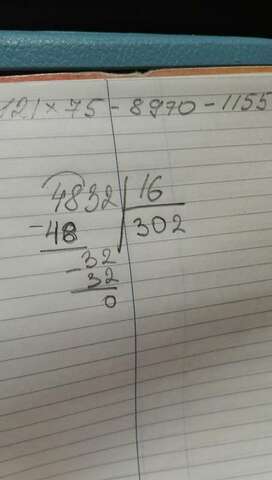 121 × 75 - 8970 - 1155
4832 | 16
-48 | 302
-32
32
0